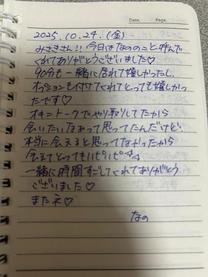 Date
Page
2025.10.24.(金)
みさきさん!! 今日はなののこと呼んで
くれてありがとうございました♡
90分も一緒に居れて嬉しかったし、
オプションも付けてくれてとっても嬉しかっ
たです♡
オキニトークでやり取りしてたから
会いたいなぁって思ってたんだけど、
本当に会えると思ってなかったから
会えてとってもハピハピです
一緒に時間すごしてくれてありがとう
ございました♡
またネ♡
なの